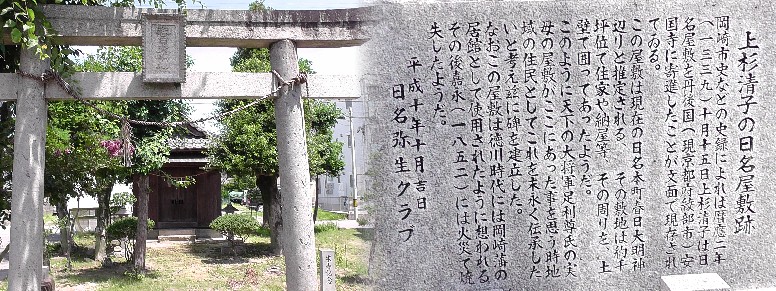 上杉清子の日名屋敷跡
岡崎市史などの史録によれば暦応二年
(一三三九)十月十五日上杉清子は日
名屋敷を丹後国(現京都府綾部市)安
国寺に寄進したことが文面で現存され
てゐる。
この屋敷は現在の日名本町春日大明神
辺りと推定される その敷地は約千
坪位で住家や納屋等 その周りを、土
壁で囲ってあったようだ。
このように天下の大将軍足利尊氏の実
母の屋敷がここにあった事を思う時地
域の住民としてこれを末永く伝承した
いと考え茲に碑を建立した。
なおこの屋敷は徳川時代には岡崎藩の
居館として使用されたように想われる
その後嘉永(一八五二)には火災で焼
失したようだ。
平成十年十月吉日
日名弥生クラブ